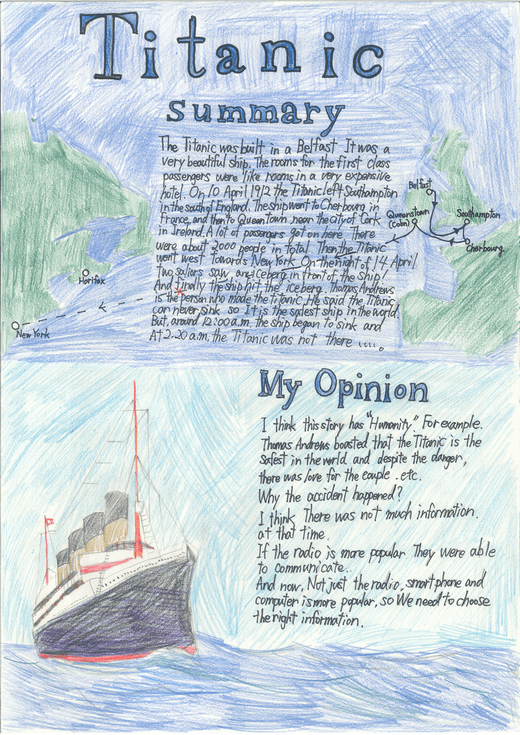 Titanic
summary
The Titanic was built in a Belfast It was a
very beautiful ship. The rooms for the first class
passengers were like rooms in a very expensive
hotel. On 10 April 1912 the Titanic left Southampton
in the south of England. The ship went to Cherbourg in
France, and then to Queentown near the city of Cork
in Ireland. A lot of passengers got on here There
were about 2000 people in total. Then the Titanic
went west towards New York On the night of 14 April
Two sailors saw and iceberg in front of the ship!
And finally the ship hit the iceberg. Thomas Andrews
is the person who made the Titanic. He said the Titanic
can never sink so It is the safest ship in the world.
But, around 12:00 a.m. the ship began to sink and
At 2.20 a.m. the Titanic was not there .....
Belfast
Queenstown
(Cobh)
Southampton
Cherbourg
Horifax
New York
My Opinion
I think this story has "Humanity". For example.
Thomas Andrews boasted that the Titanic is the
Safest in the world and despite the danger,
there was love for the couple .etc.
Why the accident happened?
I think There was not much information.
at that time.
If the radio is more popular They were able
to communicate..
And now, Not just the radio, smart phone and
computer is more popular, so We need to choose
the right information.